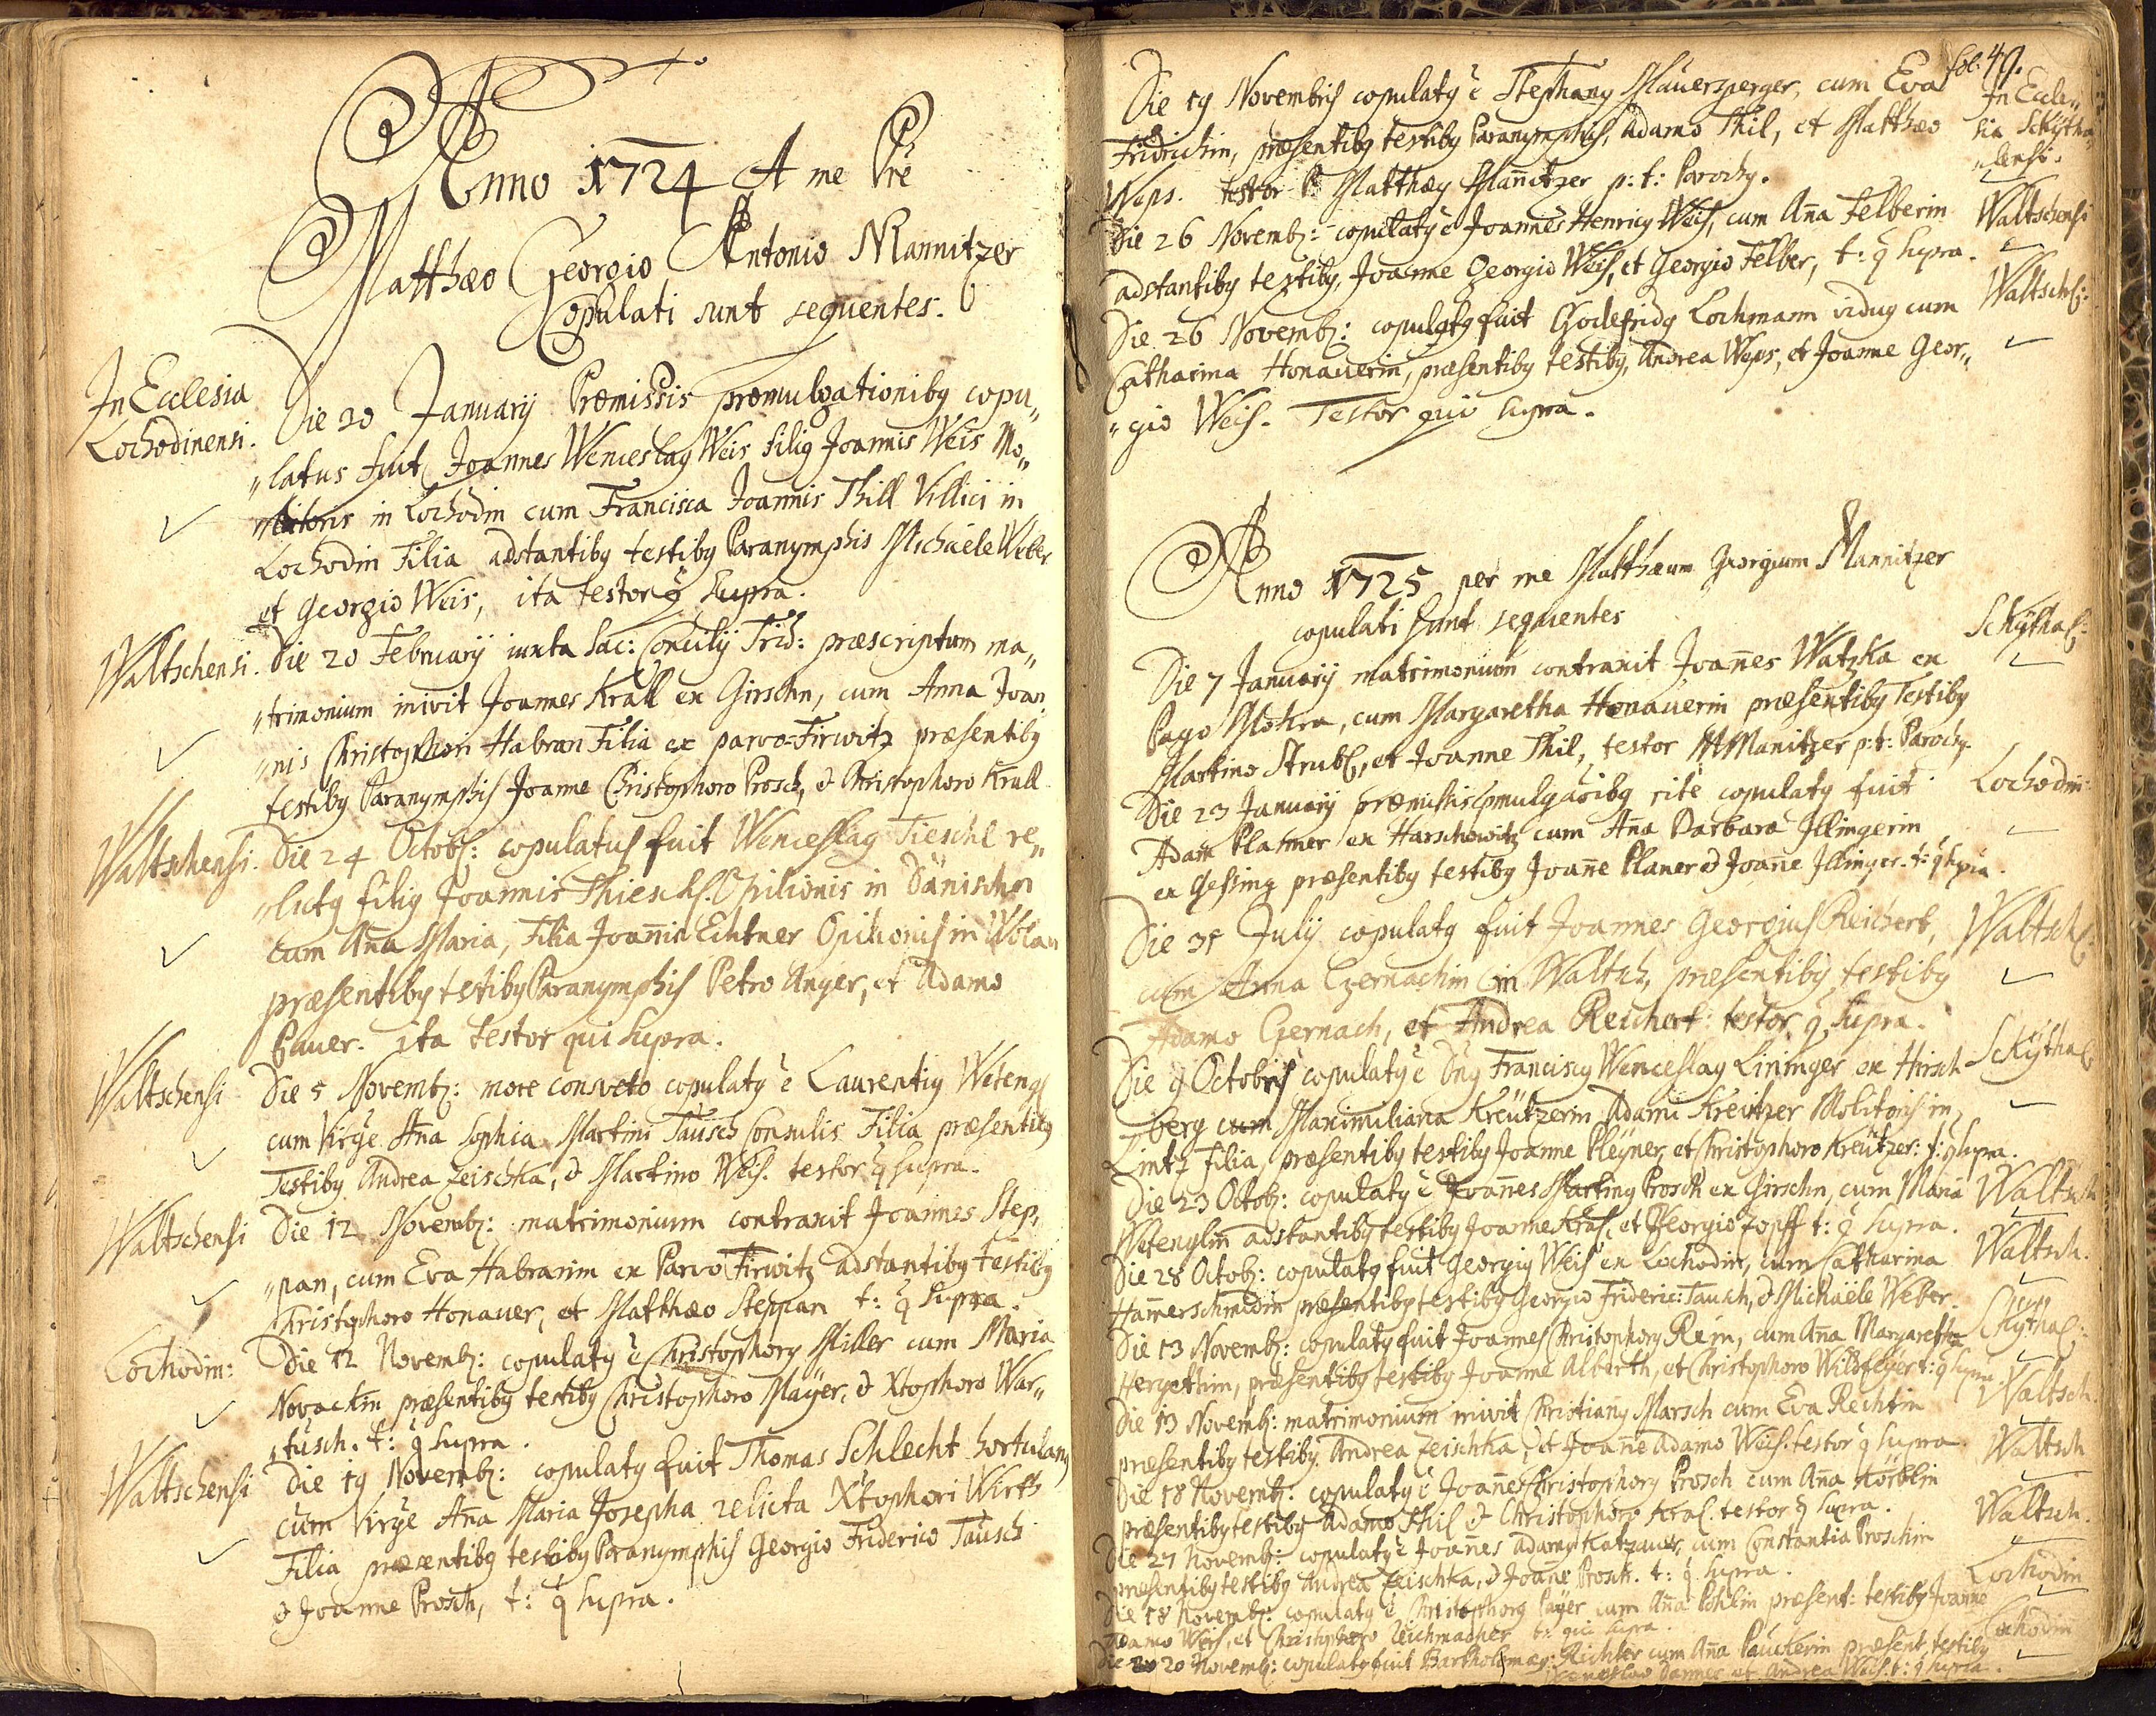 Anno 1724 A me Pre
Matthæo Georgio Antonio Mannitzer
Copulati sunt sequentes.
In Ecclesia
Lochodinensi.
Die 20 Januarÿ Præmissis promulgationibꝯ copu„
„latus fuit Joannes Wenceslaꝯ Weis filiꝯ Joannis Weis Mo„
„litoris in Lochodin cum Francisca Joannis Thill Villici in
Lochodin Filia adstantibꝯ testibꝯ Paranymphis Michaele Weber
et Georgio Weis, ita testor q̄ supra.
Waltschensi.
Die 20 Februarÿ iuxta Sac: Concilÿ Trid: præscriptum ma„
„trimonium inivit Joannes Krall ex Girschn, cum Anna Joan„
„nis Christophori Habran Filia ex parvo-Firwitz præsentibꝯ
testibꝯ Paranymphis Joanne Christophoro Prosch, & Christophoro Krall
Waltschensi.
Die 24 Octob: copulatus fuit Wenceslaꝯ Tieschl re„
„lictꝯ filiꝯ Joannis Thieschl Opilionis in Dänischen
cum Aña Maria, Filia Joañis Eichtner Opilionis in
præsentibꝯ testibꝯ Paranymphis Petro Anger, et Adamo
Pauer. ita testor qui supra.
Waltschensi
Die 5 Novemb: more consveto copulatꝯ ē Laurentiꝯ Wetengl
cum Virge Aña Sophia Martini Tausch Consulis Filia præsentibꝯ
Testibꝯ Andrea Zeischka, & Martino Weis. testor q̄ supra.
Waltschensi
Die 12 Novemb: matrimonium contraxit Joannes Step„
„pan, cum Eva Habranin ex Parvo Firwitz adstantibꝯ testibꝯ
Christophoro Honauer, et Matthæo Steppan t: q̄ supra.
Lochodin:
Die 12 Novemb: copulatꝯ ē Christophorꝯ Miller cum Maria
Novackin præsentibꝯ testibꝯ Christophoro Maÿer, & Xtophoro War„
„tusch. t: q̄ supra.
Waltschensi
Die 19 Novemb: copulatꝯ fuit Thomas Schlecht hortulanꝯ
cum Virge Aña Maria Josepha relicta Xtophori Wirth
Filia præsentibꝯ testibꝯ Paranymphis Georgio Friderico Tausch
& Joanne Prosch, t: q̄ supra.
fol: 49.
Die 19 Novembris copulatꝯ ē Stephanꝯ Mauersperger, cum Eva
Fridrichin, præsentibꝯ testibꝯ Paranymphis, Adamo Thil, et Matthæo
Weps. testor P. Matthæꝯ Mañitzer p: t: Parochꝯ.
In Eccle„
sia Skÿtha„
„lensi.
Die 26 Novemb: copulatꝯ ē Joannes Henricꝯ Weis, cum Aña Felberin
adstantibꝯ testibꝯ, Joanne Georgio Weis, et Georgio Felber, t: q̄ supra.
Waltschensi
Die 26 Novemb: copulatꝯ fuit Godefridꝯ Lochmann viduꝯ cum
Catharina Honauerin, præsentibꝯ testibꝯ, Andrea Weps, et Joanne Geor„
„gio Weis. Testor qui supra.
Waltsch:
Anno 1725 per me Matthæum Georgium Mannitzer
copulati sunt sequentes
Skÿthal:
Die 7 Januarÿ matrimonium contraxit Joañes Watzka ex
Pago Mokra, cum Margaretha Honauerin præsentibꝯ Testibꝯ
Martino Strubl, et Joanne Thil, testor MManitzer p: t: Parochꝯ.
Die 23 Januarÿ præmissis promulgaōibꝯ rite copulatꝯ fuit
Adam Planer ex Harschowitz cum Aña Barbara Illingerin
ex Gessing præsentibꝯ testibꝯ Joañe Planer & Joañe Illinger. t: q̄ supra.
Lochodin:
Die 31 Julÿ copulatꝯ fuit Joannes Georgius Reichert,
cum Anna Czernachin in Waltsch, præsentibꝯ testibꝯ
Adamo Czernach, et Andrea Reichert: testor q̄ supra.
Waltsch:
Die 9 Octobris copulatꝯ ē Dnꝯ Franciscꝯ Wenceslaꝯ Lininger ex Hirsch
berg cum Maximiliana Kreützerin Adami Kreützer Molitoris in
Lintz filia, præsentibꝯ testibꝯ Joanne Pleÿner, et Christophoro Kreützer: t: q̄ supra.
Skÿthal:
Die 23 Octob: copulatꝯ ē Joañes Martinꝯ Prosch ex Girschn, cum Maria
Wetenglin adstantibꝯ testibꝯ Joanne Kral, et Georgio Zopff t: q̄ supra.
Waltsch
Die 28 Octob: copulatꝯ fuit Georgiꝯ Weis ex Lochodin, cum Catharina
Hammerschmidin præsentibꝯ testibꝯ Georgio Frideric: Tausch, & Michaële Weber.
Waltsch.
Die 13 Novemb: copulatꝯ fuit Joannes Christophorꝯ Rein, cum Aña Margaretha
Hergethin, præsentibꝯ testibꝯ Joanne Alberth, et Christophoro Wildfeÿer t: q̄ supra.
Skÿthal:
Die 13 Novemb: matrimonium inivit Christianꝯ Marsch cum Eva Rechtin
præsentibꝯ testibꝯ Andrea Zeischka, et Joañe Adamo Weis. testor q̄ supra.
Waltsch.
Die 18 Novemb: copulatꝯ ē Joañes Christophorꝯ Prosch cum Aña Körblin
præsentibꝯ testibꝯ Adamo Thil & Christophoro Kral. testor q̄ supra.
Waltsch
Die 27 Novemb: copulatꝯ ē Joañes Adamꝯ Katzauer, cum Constantia Proschin
præsentibꝯ testibꝯ Andrea Zeischka, & Joañe Prosch. t: q̄ supra.
Waltsch.
Die 18 Novemb: copulatꝯ ē Christophorꝯ Paÿer cum Aña Pohlin præsent: testibꝯ Joanne
Adamo Weis, et Christophoro Zeichmacher t: qui supra.
Lochodin
Die 20 Novemb: copulatꝯ fuit Bartholomæꝯ Richter cum Aña Pauckerin præsent. testibꝯ
Wenceslao Danner et Andrea Weis. t: q̄ supra.
Lochodin